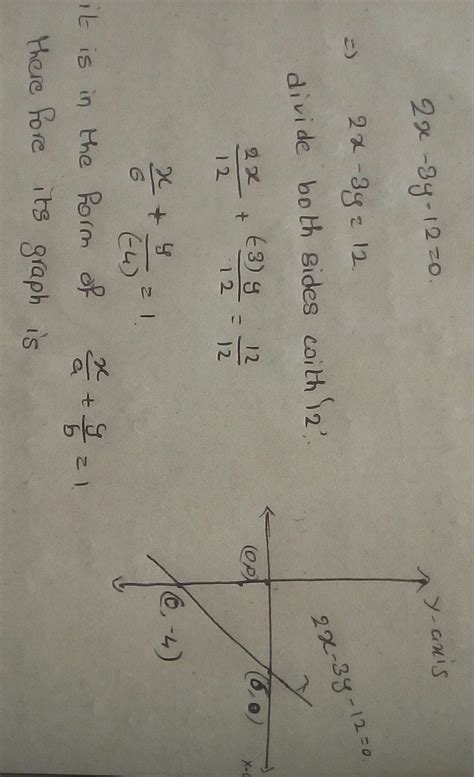 2x -3y-12=0.
=> 2x -3y = 12.
divide both sides with '12'.
2x/12 + (-3)y/12 = 12/12
x/6 + y/(-4) = 1.
it is in the form of x/a + y/b = 1.
there fore its graph is
Y-axis
2x-3y-12=0.
(0,0)
(6,0)
(0,-4)